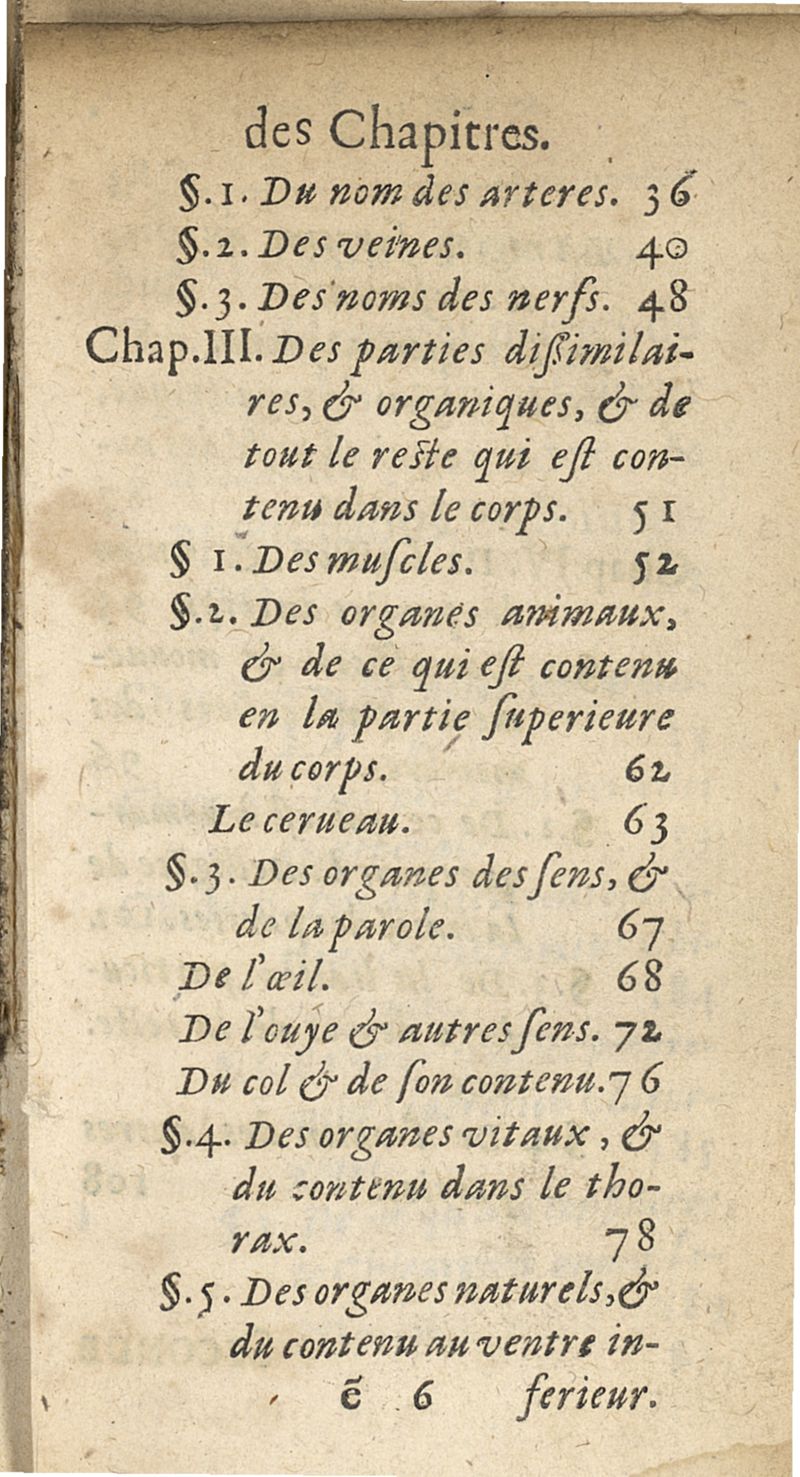 des Chapitres.
§.1. Du nom des arteres. 36
§.2. Des veines. 40
§.3. Des noms des nerfs. 48
Chap.III. Des parties diſſimilai-
res, & organiques, & de
tout le reſte qui eſt con-
tenu dans le corps. 51
§ 1. Des muſcles. 52
§.2. Des organes animaux,
& de ce qui eſt contenu
en la partie ſuperieure
du corps. 62
Le cerueau. 63
§.3. Des organes des ſens, &
de la parole. 67
De l'œil. 68
De l'ouye & autres ſens. 72
Du col & de ſon contenu. 76
§.4. Des organes vitaux, &
du contenu dans le tho-
rax. 78
§.5. Des organes naturels, &
du contenu au ventre in-
ẽ 6 ferieur.